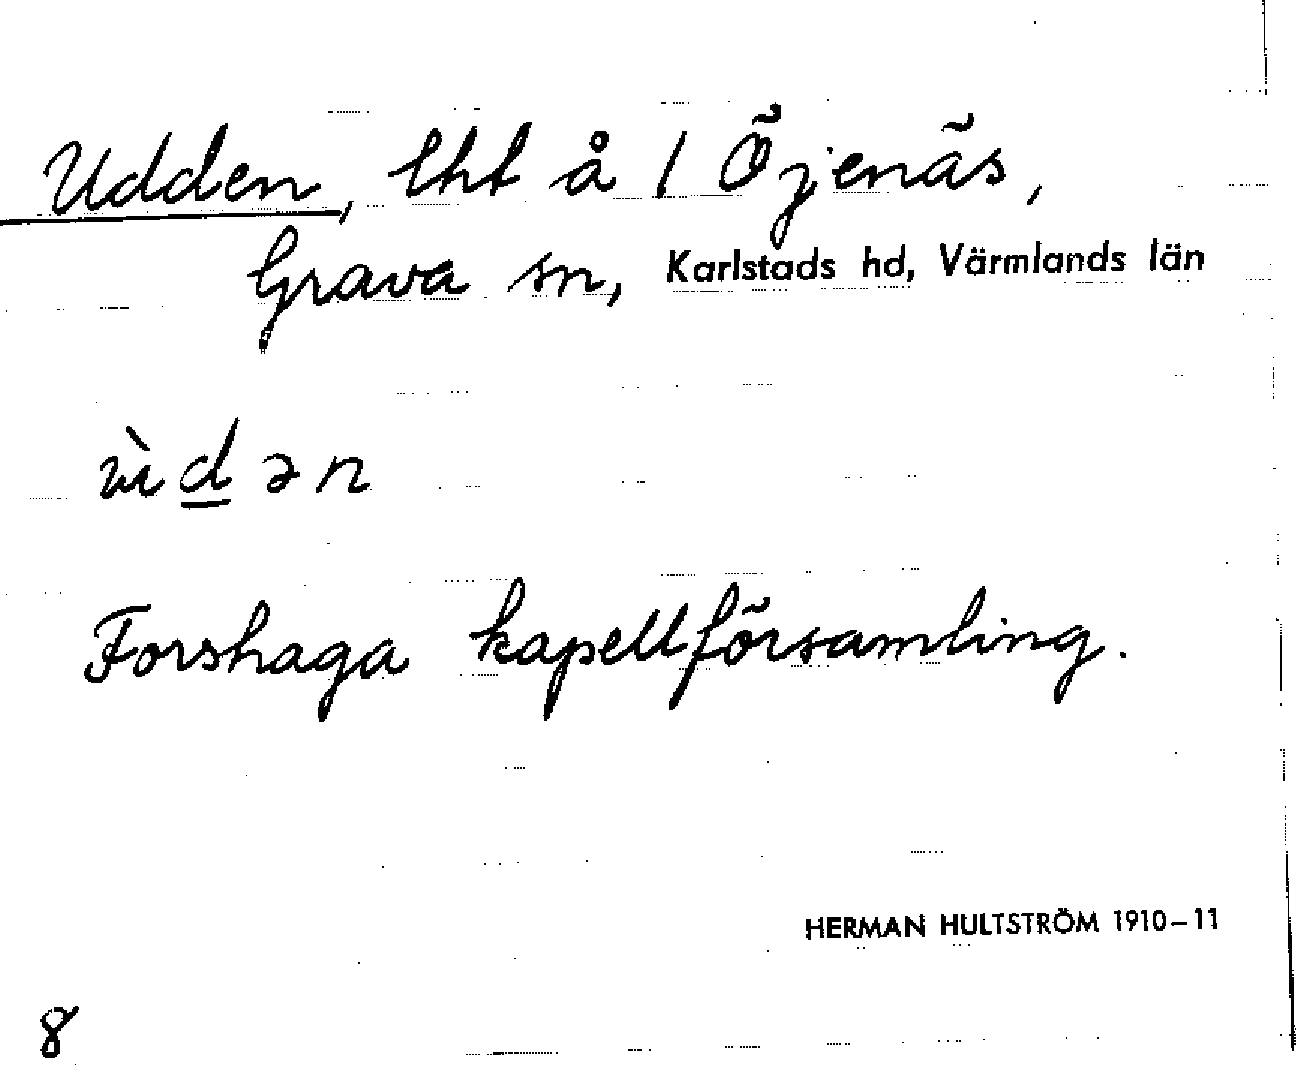 Udden, lht å 1 Öjenäs,
Grava sn, Karlstads hd, Värmlands län
ùdən
Forshaga kapellförsamling.
HERMAN HULTSTRÖM 1910-11
8